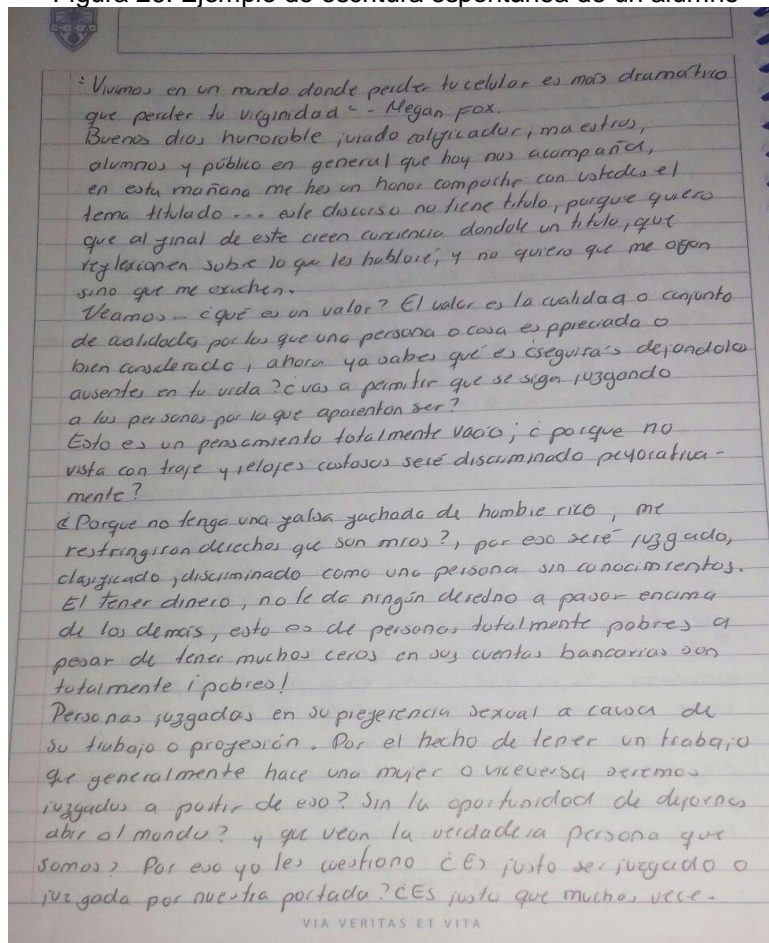 Figura 20. Ejemplo de escritura espontánea de un alumno
"Vivimos en un mundo donde perder tu celular es más dramatico
que perder tu virginidad" - Megan Fox.
Buenos dias honorable jurado calificador, maestros,
alumnos y público en general que hoy nos acompaña,
en esta mañana me hes un honor compachr con ustedes el
tema titulado ... este discurso no tiene titulo, porque quiero
que al final de este creen conciencia dandole un titulo, que
reflexionen sobre lo que les hablaré, y no quiero que me oigan
sino que me escuchen.
Veamos... ¿qué es un valor? El valor es la cualidad o conjunto
de cualidades por las que una persona o cosa es appreciada o
bien considerada, ahora ya sabes qué es ¿seguirás dejandolos
ausentes en tu vida? ¿vas a permitir que se siga juzgando
a las personas por lo que aparentan ser?
Esto es un pensamiento totalmente vacio; ¿porque no
vista con traje y relojes costosos seré discriminado peyorativa-
mente?
¿Porque no tenga una falsa fachada de hombre rico, me
restringiran derechos que son mios?, por eso seré juzgado,
clasificado, discriminado como una persona sin conocimientos.
El tener dinero, no le da ningún derecho a pasar encima
de los demás, esto es de personas totalmente pobres a
pesar de tener muchos ceros en sus cuentas bancarias son
totalmente ¡pobres!
Personas juzgadas en su preferencia sexual a causa de
su trabajo o profesión. Por el hecho de tener un trabajo
que generalmente hace una mujer o viceversa seremos
juzgados a partir de eso? Sin la oportunidad de dejarnos
abir al mundo? y que vean la verdadera persona que
somos? Por eso yo les cuestiono ¿Es justo ser juzgado o
juzgada por nuestra portada? ¿Es justo que muchas vece-
VIA VERITAS ET VITA